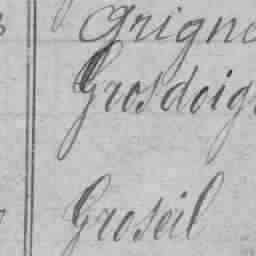 Grigno
Grosdoig
Groseil